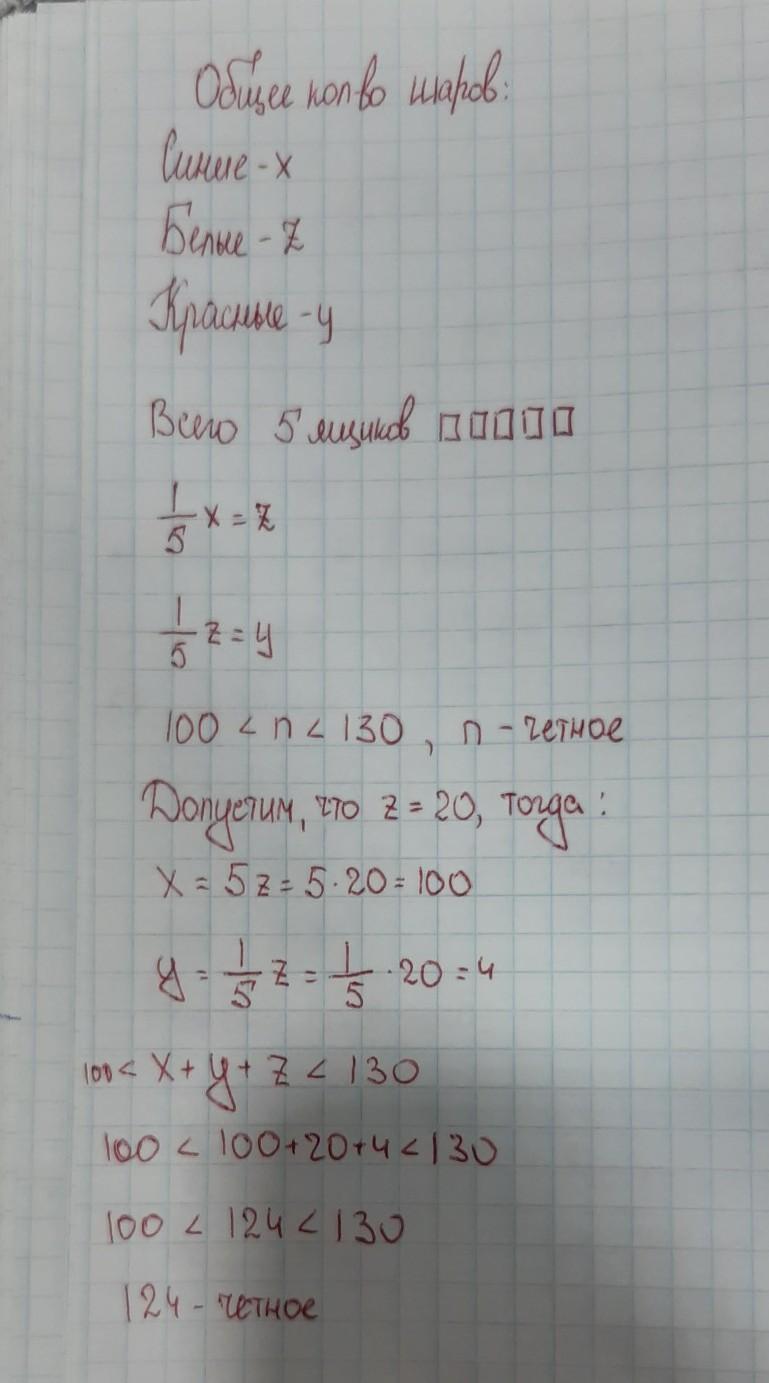 Общее кол-во шаров:
Синие - x
Белые - z
Красные - y
Всего 5 ящиков □□□□□
1/5 x = z
1/5 z = y
100 < n < 130, n - четное
Допустим, что z = 20, тогда:
x = 5z = 5·20 = 100
y = 1/5 z = 1/5 · 20 = 4
100 < x + y + z < 130
100 < 100+20+4 < 130
100 < 124 < 130
124 - четное